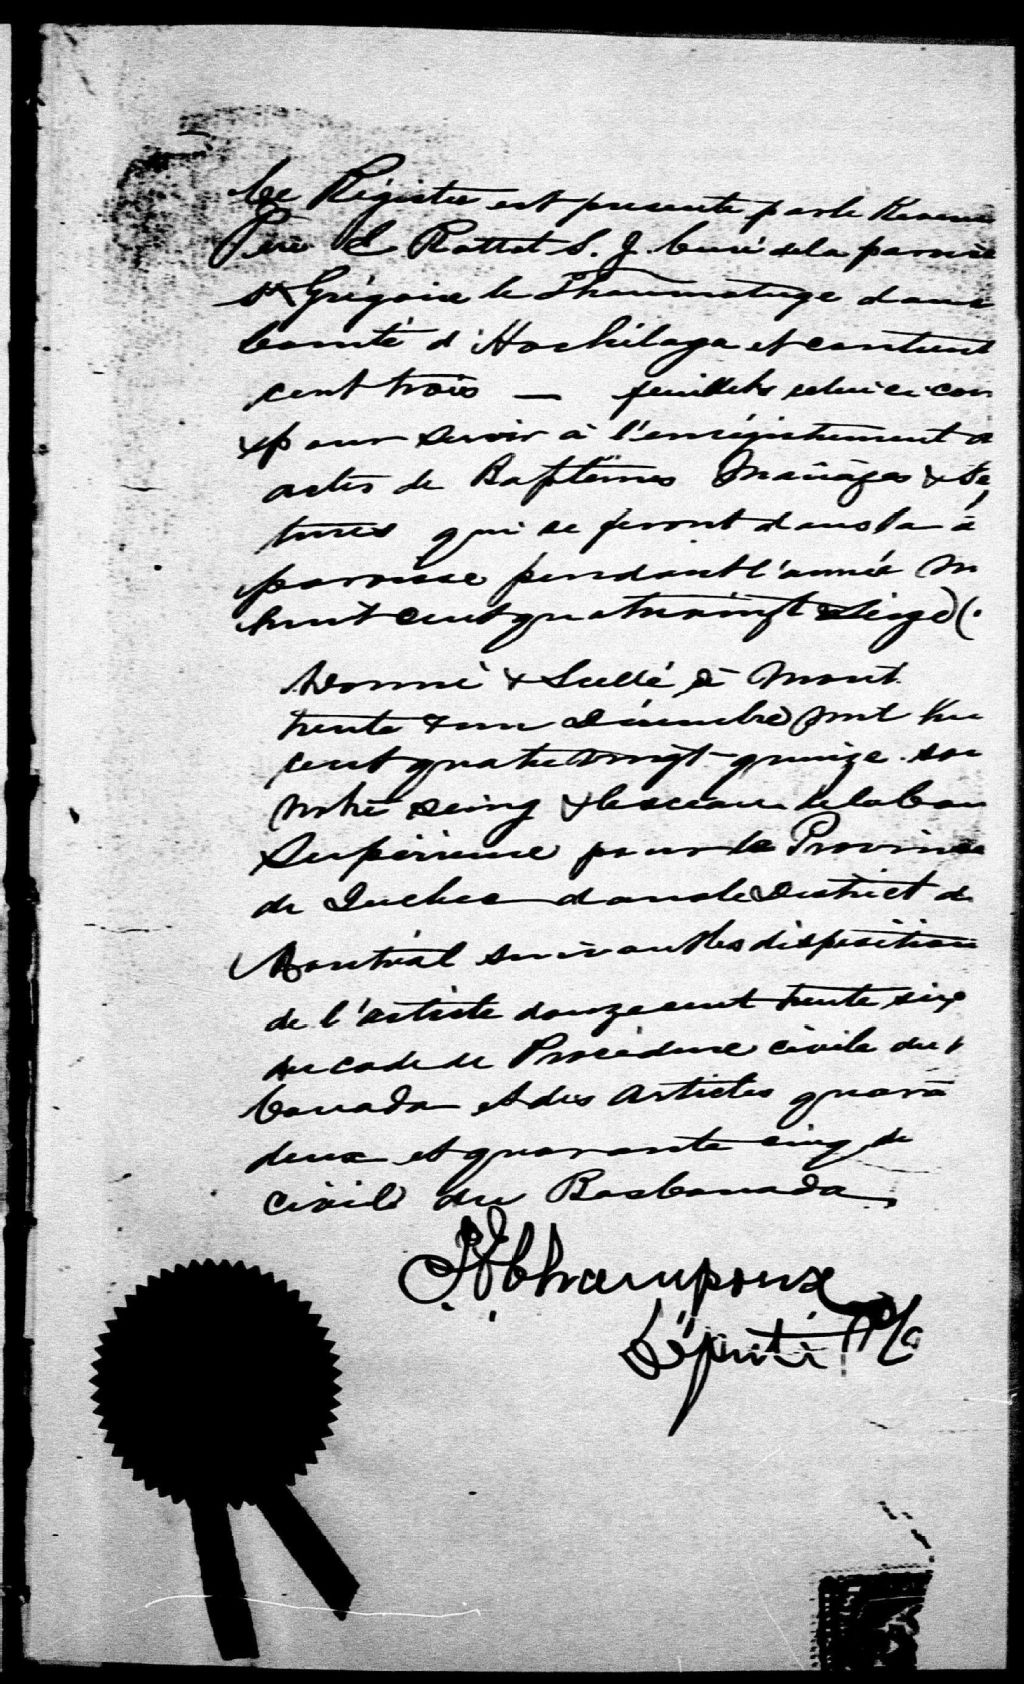 Ce Régistre est presenté par le Reverend
Père E Rottot S. J. Curé de la paroisse
St Grégoire le Thaumaturge dans
Comté d'Hochelaga et contient
cent trois — feuillets celui ci com
& pour servir à l'enrégistrement d
actes de Baptêmes Mariages & Sé
tures qui se feront dans la d
paroisse pendant l'année M
huit cent quatrevingt Seize (.
Donné & Scellé à Mont
trente & un Décembre mil hu
cent quatrevingt quinze sou
notre seing & le sceau de la Cou
Supérieure pour la Province
de Quebec dans le District de
Montréal suivant les disposition
de l'article douze cent trente six
du code de Procédure civile du b
Canada et des Articles quara
deux et quarante cinq de
civil du Bas Canada.
Champoux
Député P